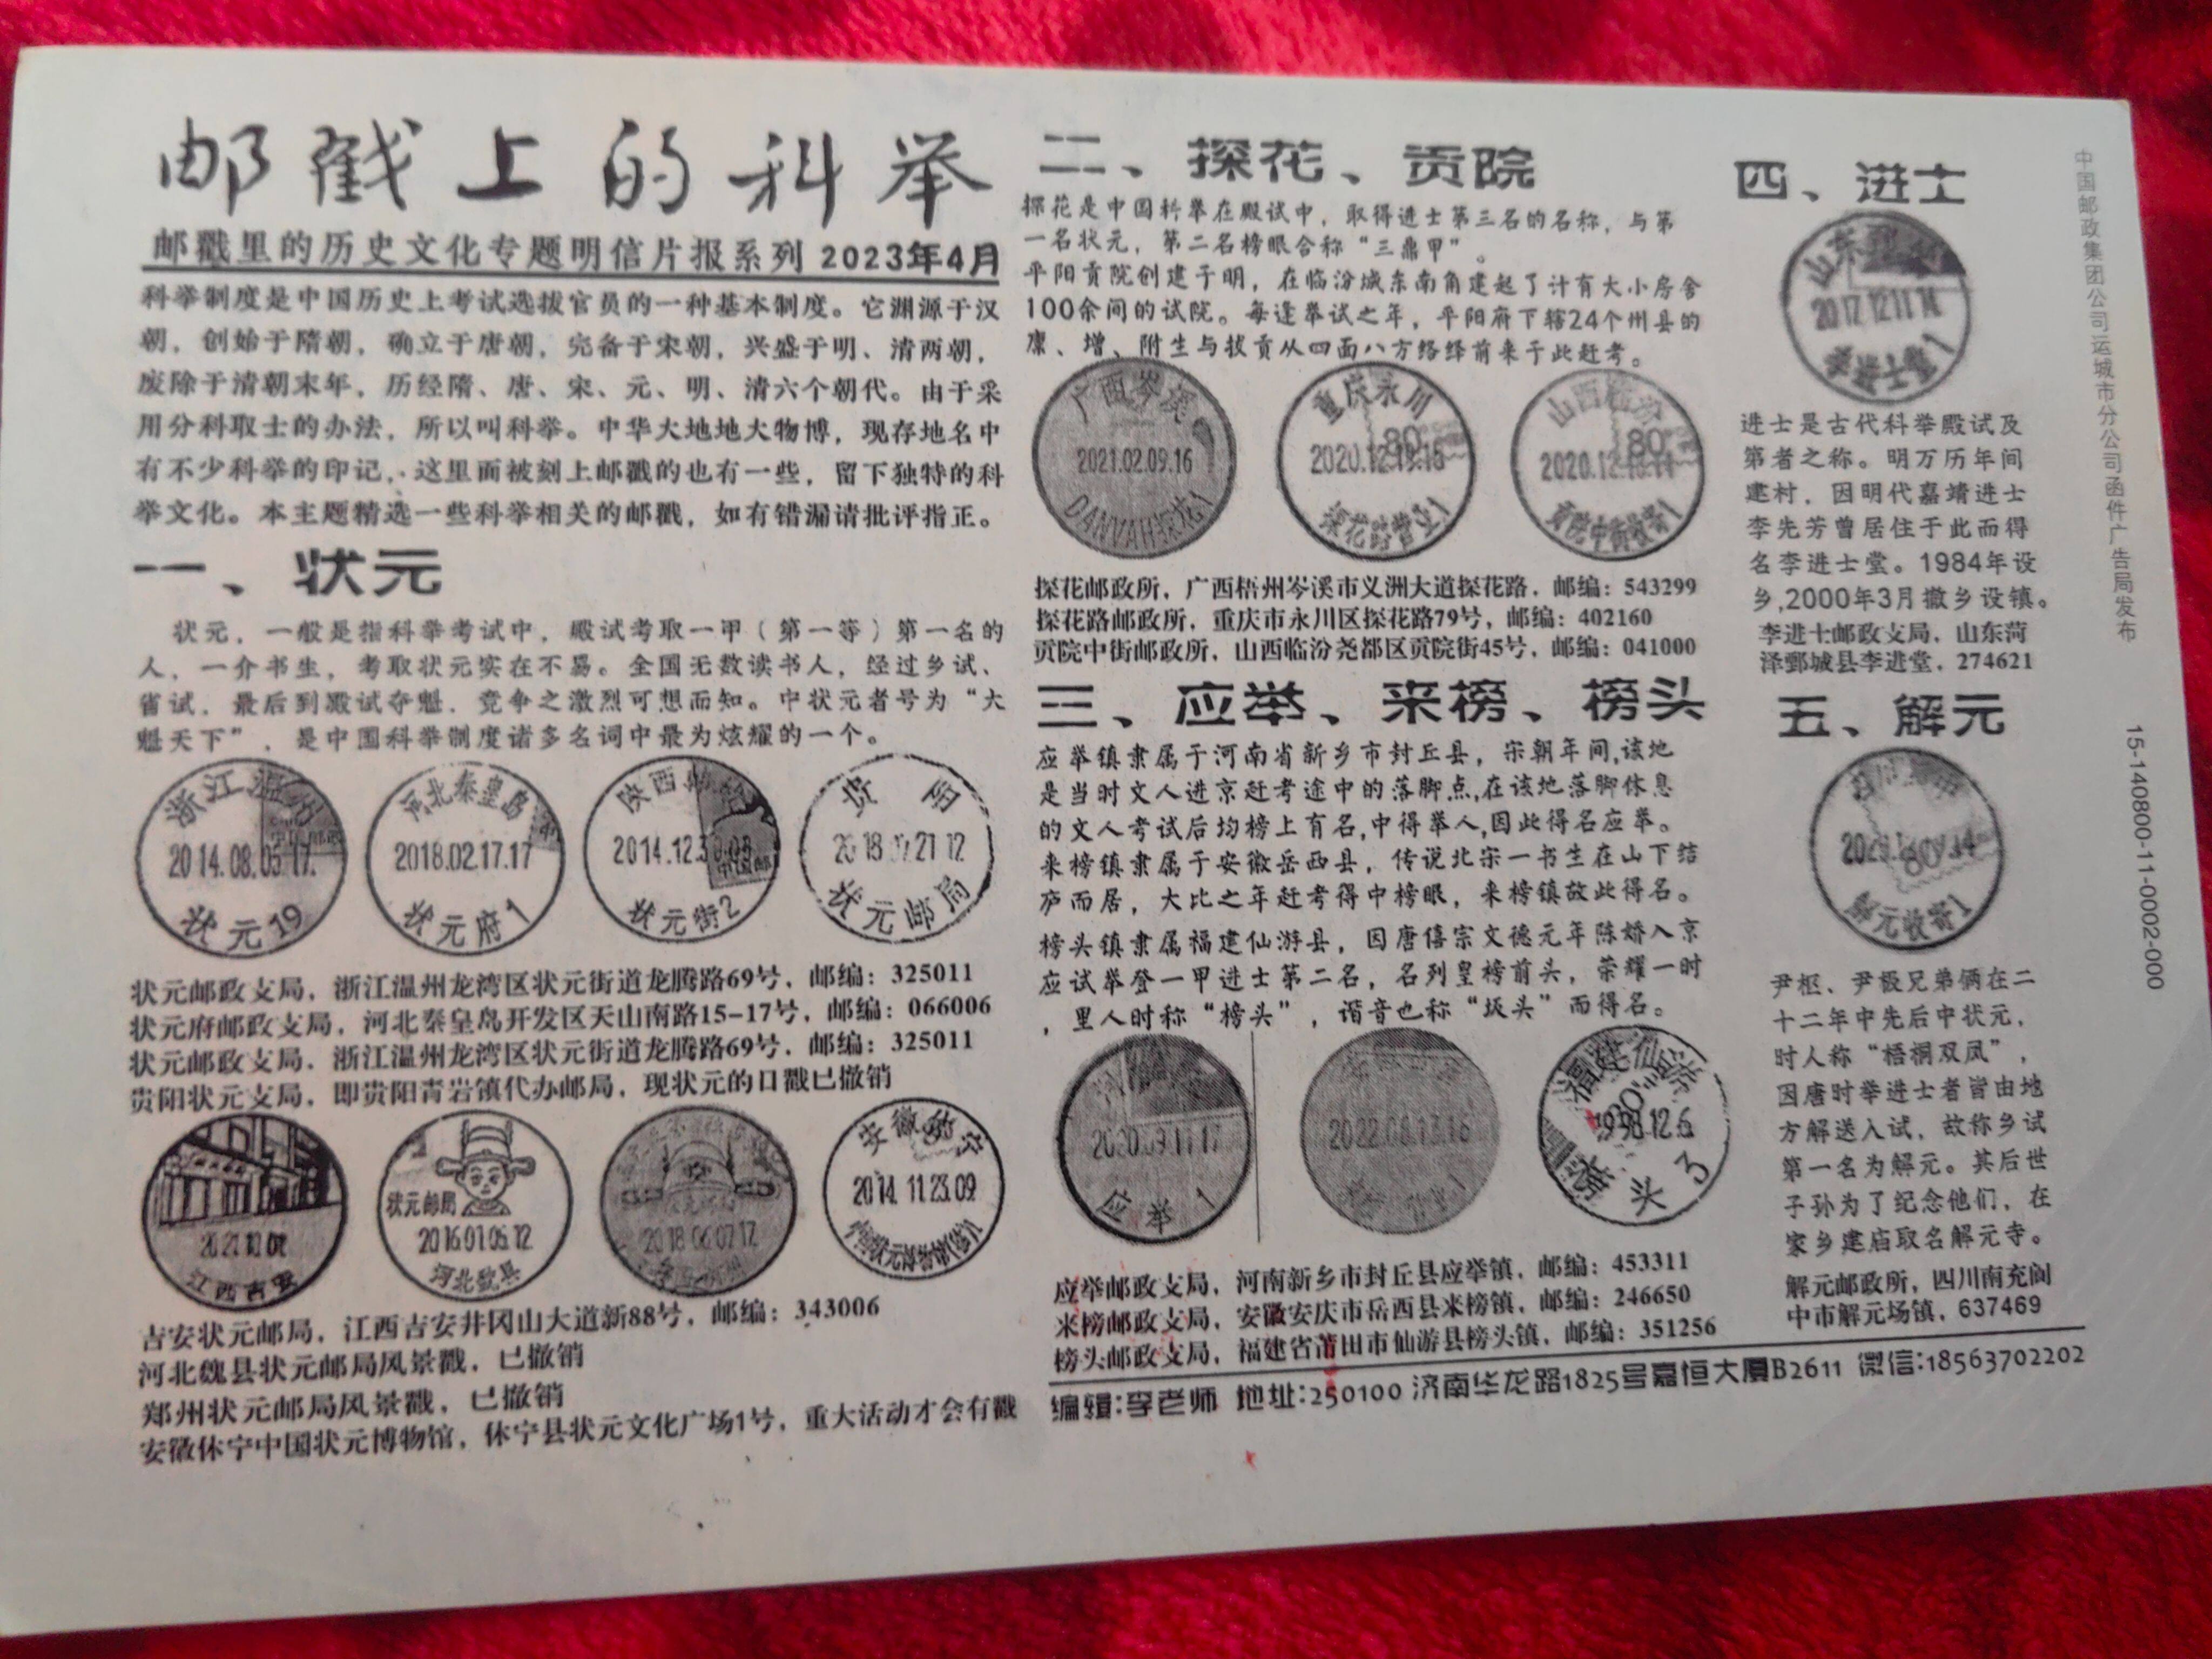 邮戳上的科举
邮戳里的历史文化专题明信片报系列 2023年4月
科举制度是中国历史上考试选拔官员的一种基本制度。它渊源于汉
朝，创始于隋朝，确立于唐朝，完备于宋朝，兴盛于明、清两朝，
废除于清朝末年，历经隋、唐、宋、元、明、清六个朝代。由于采
用分科取士的办法，所以叫科举。中华大地地大物博，现存地名中
有不少科举的印记，这里面被刻上邮戳的也有一些，留下独特的科
举文化。本主题精选一些科举相关的邮戳，如有错漏请批评指正。
一、状元
状元，一般是指科举考试中，殿试考取一甲（第一等）第一名的
人，一介书生，考取状元实在不易。全国无数读书人，经过乡试、
省试，最后到殿试夺魁，竞争之激烈可想而知。中状元者号为“大
魁天下”，是中国科举制度诸多名词中最为炫耀的一个。
浙江温州
2014.08.05.17.
状元19
河北秦皇岛
2018.02.17.17
状元府1
陕西
2014.12.3
状元街2
贵阳
状元邮局
状元邮政支局，浙江温州龙湾区状元街道龙腾路69号，邮编：325011
状元府邮政支局，河北秦皇岛开发区天山南路15-17号，邮编：066006
状元邮政支局，浙江温州龙湾区状元街道龙腾路69号，邮编：325011
贵阳状元支局，即贵阳青岩镇代办邮局，现状元的口戳已撤销
江西吉安
状元邮局
2016.01.06.12
河北魏县
2018.06.07.17
安徽休宁
2014.11.23.09
吉安状元邮局，江西吉安井冈山大道新88号，邮编：343006
河北魏县状元邮局风景戳，已撤销
郑州状元邮局风景戳，已撤销
安徽休宁中国状元博物馆，休宁县状元文化广场1号，重大活动才会有戳
二、探花、贡院
探花是中国科举在殿试中，取得进士第三名的名称，与第
一名状元，第二名榜眼合称“三鼎甲”。
平阳贡院创建于明，在临汾城东南角建起了计有大小房舍
100余间的试院。每逢举试之年，平阳府下辖24个州县的
廪、增、附生与拔贡从四面八方络绎前来于此赶考。
广西岑溪
2021.02.09.16
DANVAH探花1
重庆永川
80
探花路营业1
山西临汾
80
贡院中街收寄1
探花邮政所，广西梧州岑溪市义洲大道探花路，邮编：543299
探花路邮政所，重庆市永川区探花路79号，邮编：402160
贡院中街邮政所，山西临汾尧都区贡院街45号，邮编：041000
三、应举、来榜、榜头
应举镇隶属于河南省新乡市封丘县，宋朝年间,该地
是当时文人进京赶考途中的落脚点,在该地落脚休息
的文人考试后均榜上有名,中得举人,因此得名应举。
来榜镇隶属于安徽岳西县，传说北宋一书生在山下结
庐而居，大比之年赶考得中榜眼，来榜镇故此得名。
榜头镇隶属福建仙游县，因唐僖宗文德元年陈峤入京
应试举登一甲进士第二名，名列皇榜前头，荣耀一时
，里人时称“榜头”，谐音也称“坂头”而得名。
2020.09.11.17
应举1
2022.08.13.16
福建仙游
1998.12.6
榜头3
应举邮政支局，河南新乡市封丘县应举镇，邮编：453311
来榜邮政支局，安徽安庆市岳西县来榜镇，邮编：246650
榜头邮政支局，福建省莆田市仙游县榜头镇，邮编：351256
编辑:李老师 地址:250100 济南华龙路1825号嘉恒大厦B2611 微信:18563702202
四、进士
山东
2017.12.11.14
李进士堂1
进士是古代科举殿试及
第者之称。明万历年间
建村，因明代嘉靖进士
李先芳曾居住于此而得
名李进士堂。1984年设
乡,2000年3月撤乡设镇。
李进士邮政支局，山东菏
泽鄄城县李进堂，274621
五、解元
80
解元收寄1
尹枢、尹极兄弟俩在二
十二年中先后中状元，
时人称“梧桐双凤”，
因唐时举进士者皆由地
方解送入试，故称乡试
第一名为解元。其后世
子孙为了纪念他们，在
家乡建庙取名解元寺。
解元邮政所，四川南充阆
中市解元场镇，637469
中国邮政集团公司运城市分公司函件广告局发布
15-140800-11-0002-000